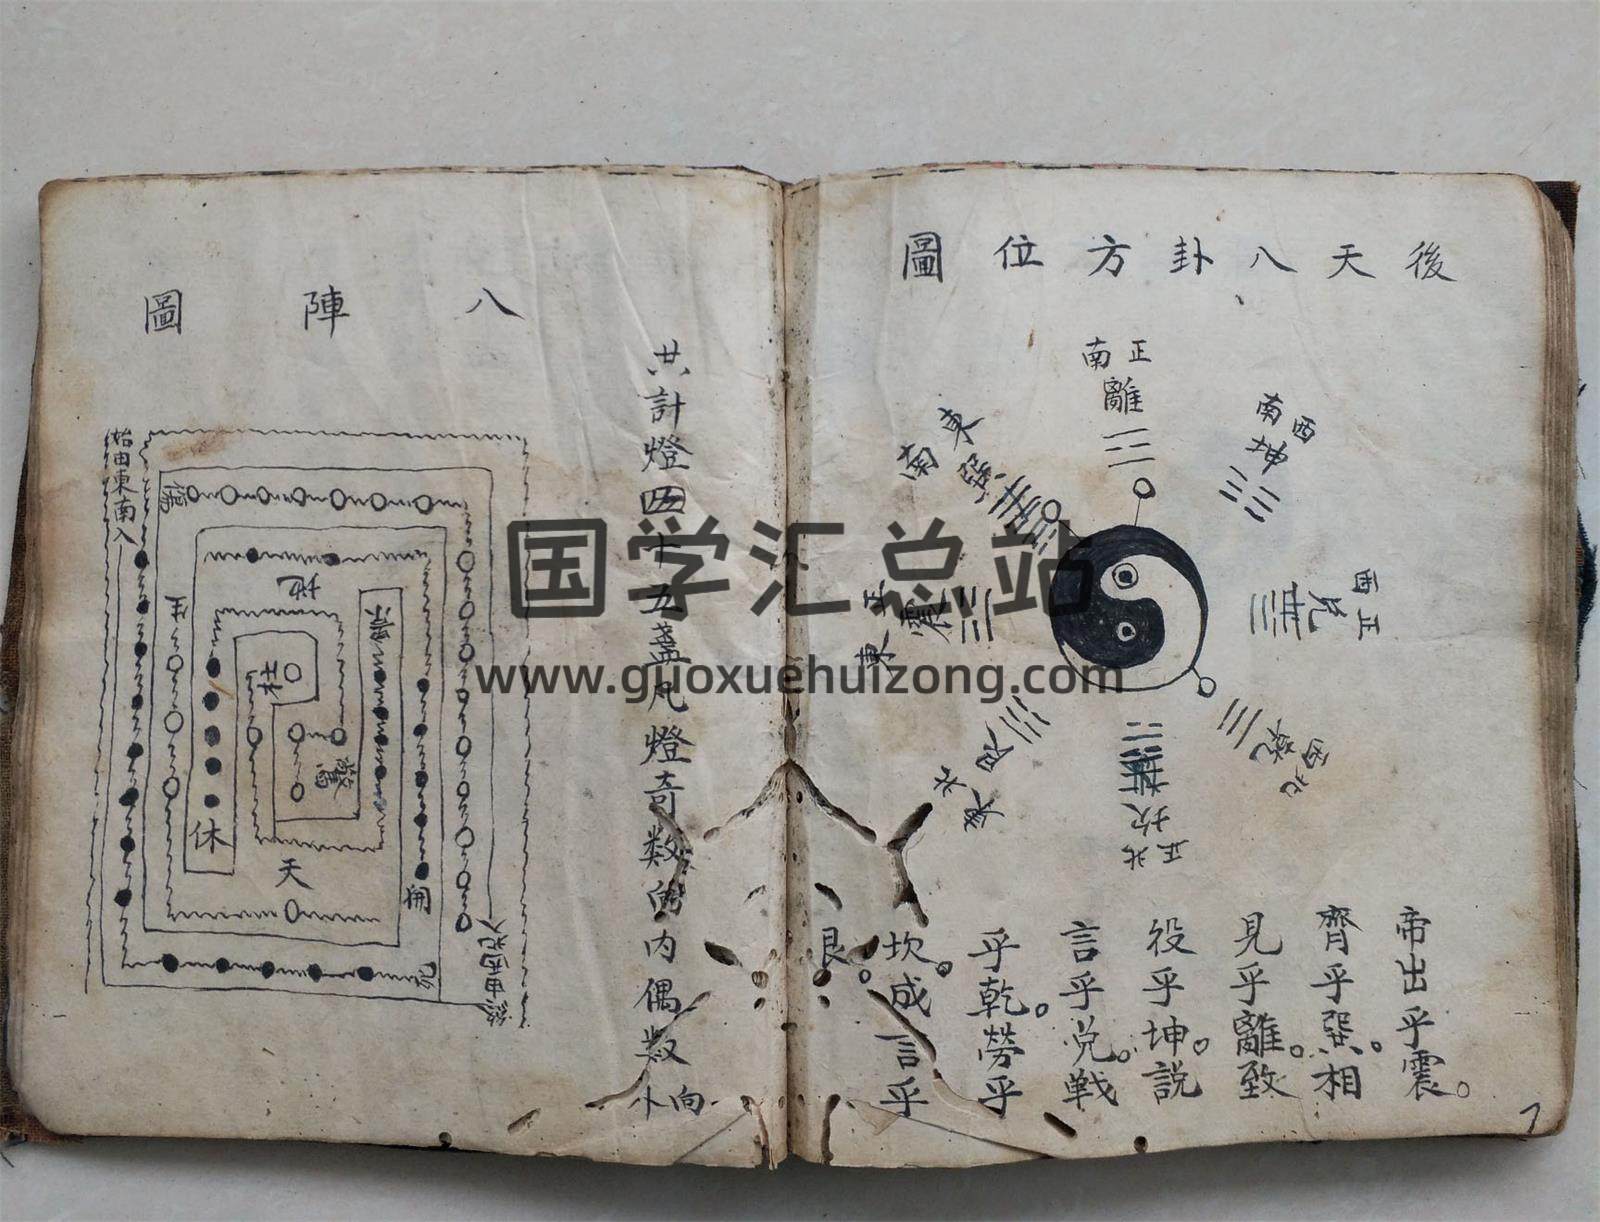 後天八卦方位圖
正南
離
西南
坤
正西
兌
西北
乾
正北
坎
東北
艮
正東
震
東南
巽
帝出乎震。
齊乎巽。相
見乎離。致
役乎坤。說
言乎兌。戦
乎乾。勞乎
坎。成言乎
艮。
7
八陣圖
共計燈四十五盞凡燈奇数向内偶数向外
始由東南入
傷
生
地
杜
休
天
開
死
国学汇总站
www.guoxuehuizong.com